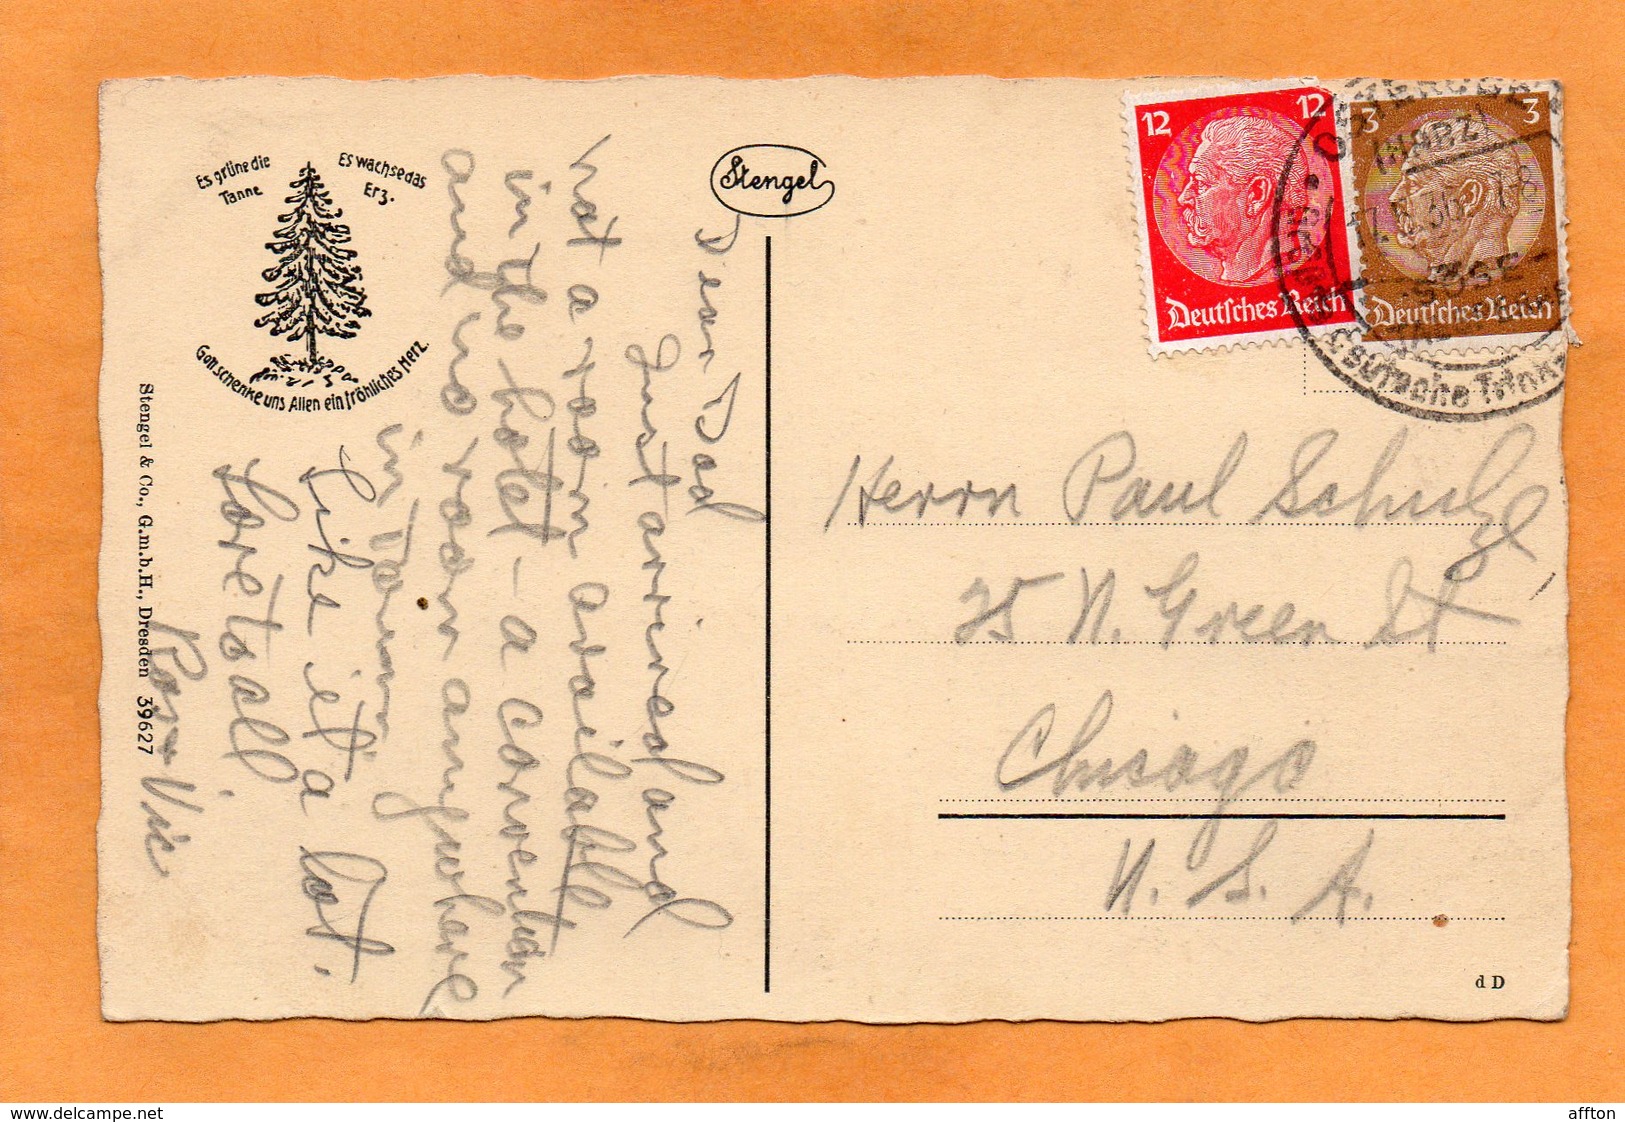 Es grüne die
Tanne
Es wachse das
Erz.
Gott schenke uns Allen ein fröhliches Herz.
Stengel & Co., G.m.b.H., Dresden 39627
Stengel
Dear Dad
Just arrived and
not a room available
in the hotel - a convention
and no room anywhere
in Town
Like it a lot.
Love to all.
Ros & Vic
12 12
Deutsches Reich
3 3
Deutsches Reich
(Harz)
Deutsche Trink
Herrn Paul Schulze
25 N. Green St
Chicago
U. S. A.
d D
www.delcampe.net
affton